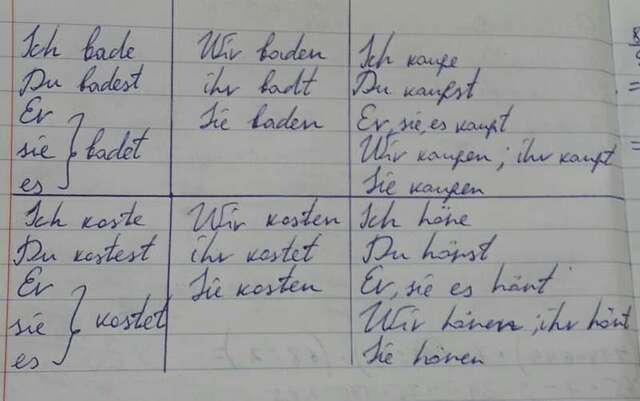 Ich bade
Du badest
Er
sie } badet
es
Wir baden
ihr badt
Sie baden
Ich kaufe
Du kaufst
Er, sie, es kauft
Wir kaufen; ihr kauft
Sie kaufen
Ich koste
Du kostest
Er
sie } kostet
es
Wir kosten
ihr kostet
Sie kosten
Ich höre
Du hörst
Er, sie es hört
Wir hören; ihr hört
Sie hören